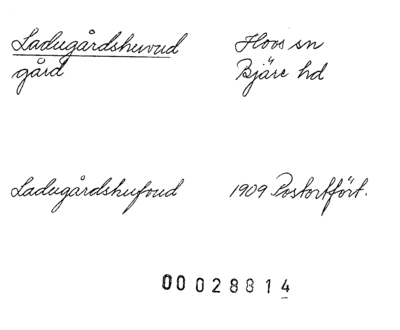 Ladugårdshuvud Hovs sn
gård Bjäre hd
Ladugårdshufvud 1909 Postortfört.
00028814